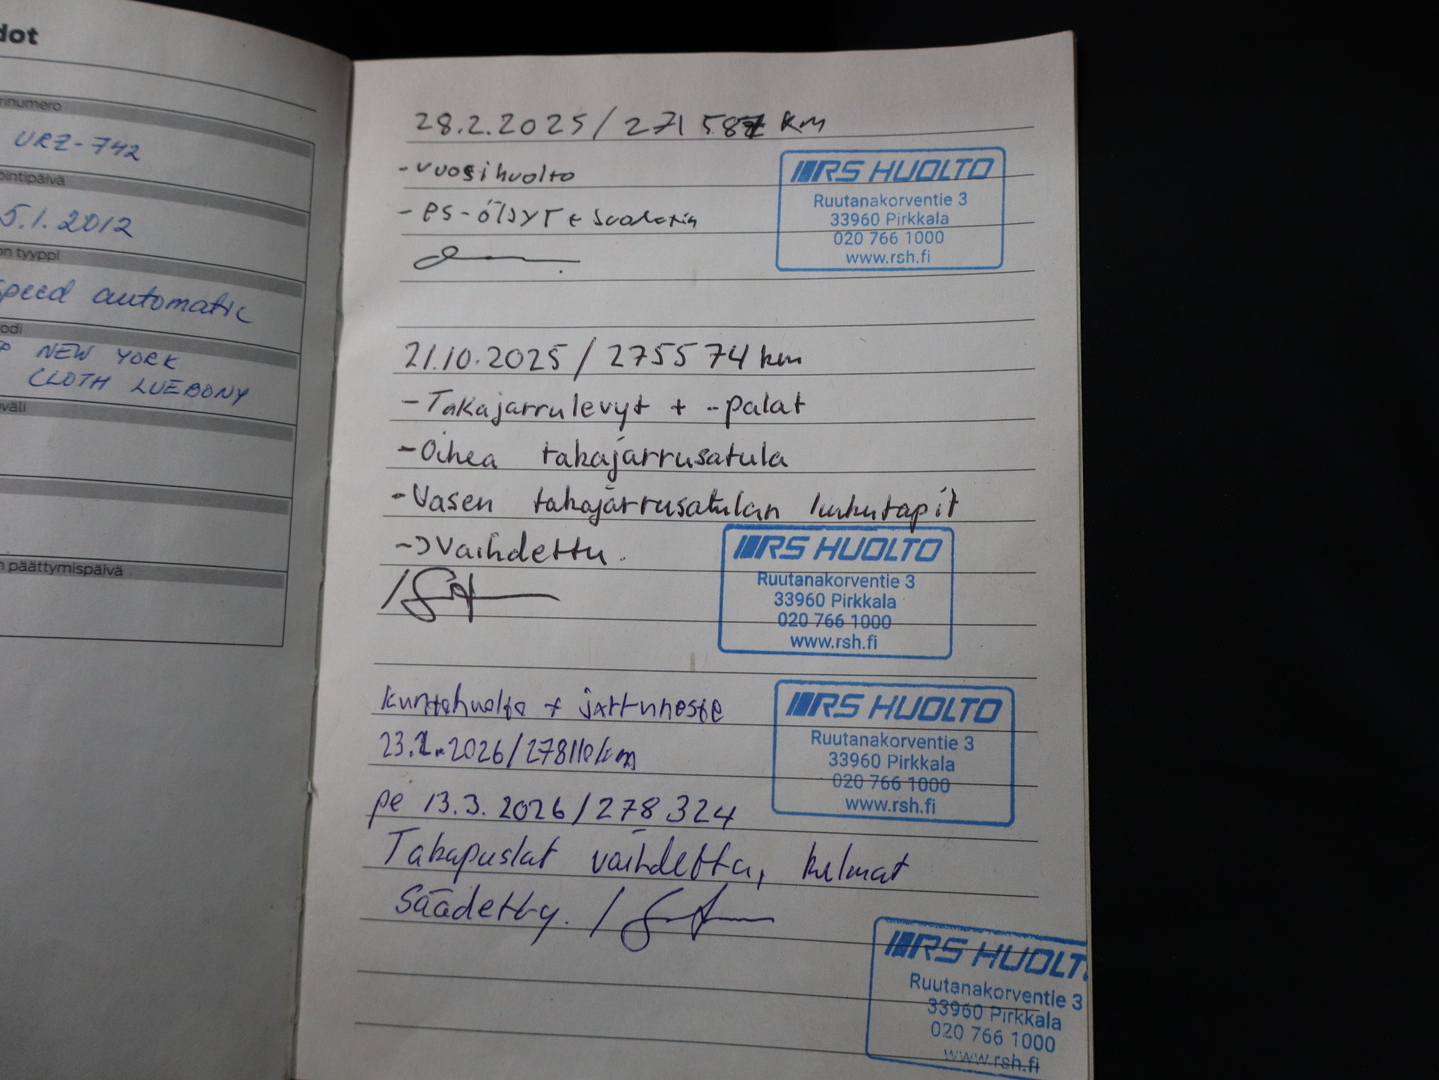 dot
rinumero
URZ-742
ointipäivä
5.1.2012
on tyyppi
speed automatic
odi
P NEW YORK
CLOTH LUEBONY
väli
n päättymispäivä
28.2.2025 / 271 587 km
- vuosihuolto
- PS-öljyt + suodatin
RS HUOLTO
Ruutanakorventie 3
33960 Pirkkala
020 766 1000
www.rsh.fi
21.10.2025 / 275574 km
- Takajarrulevyt + -palat
- Oikea takajarrusatula
- Vasen takajarrusatulan liukutapit
-> Vaihdettu.
RS HUOLTO
Ruutanakorventie 3
33960 Pirkkala
020 766 1000
www.rsh.fi
kuntohuolto + jarruneste
23.2.2026/278110/km
RS HUOLTO
Ruutanakorventie 3
33960 Pirkkala
020 766 1000
www.rsh.fi
pe 13.3.2026/278324
Takapuslat vaihdettu, kulmat
säädetty. /
RS HUOLT
Ruutanakorventie 3
33960 Pirkkala
020 766 1000
www.rsh.fi